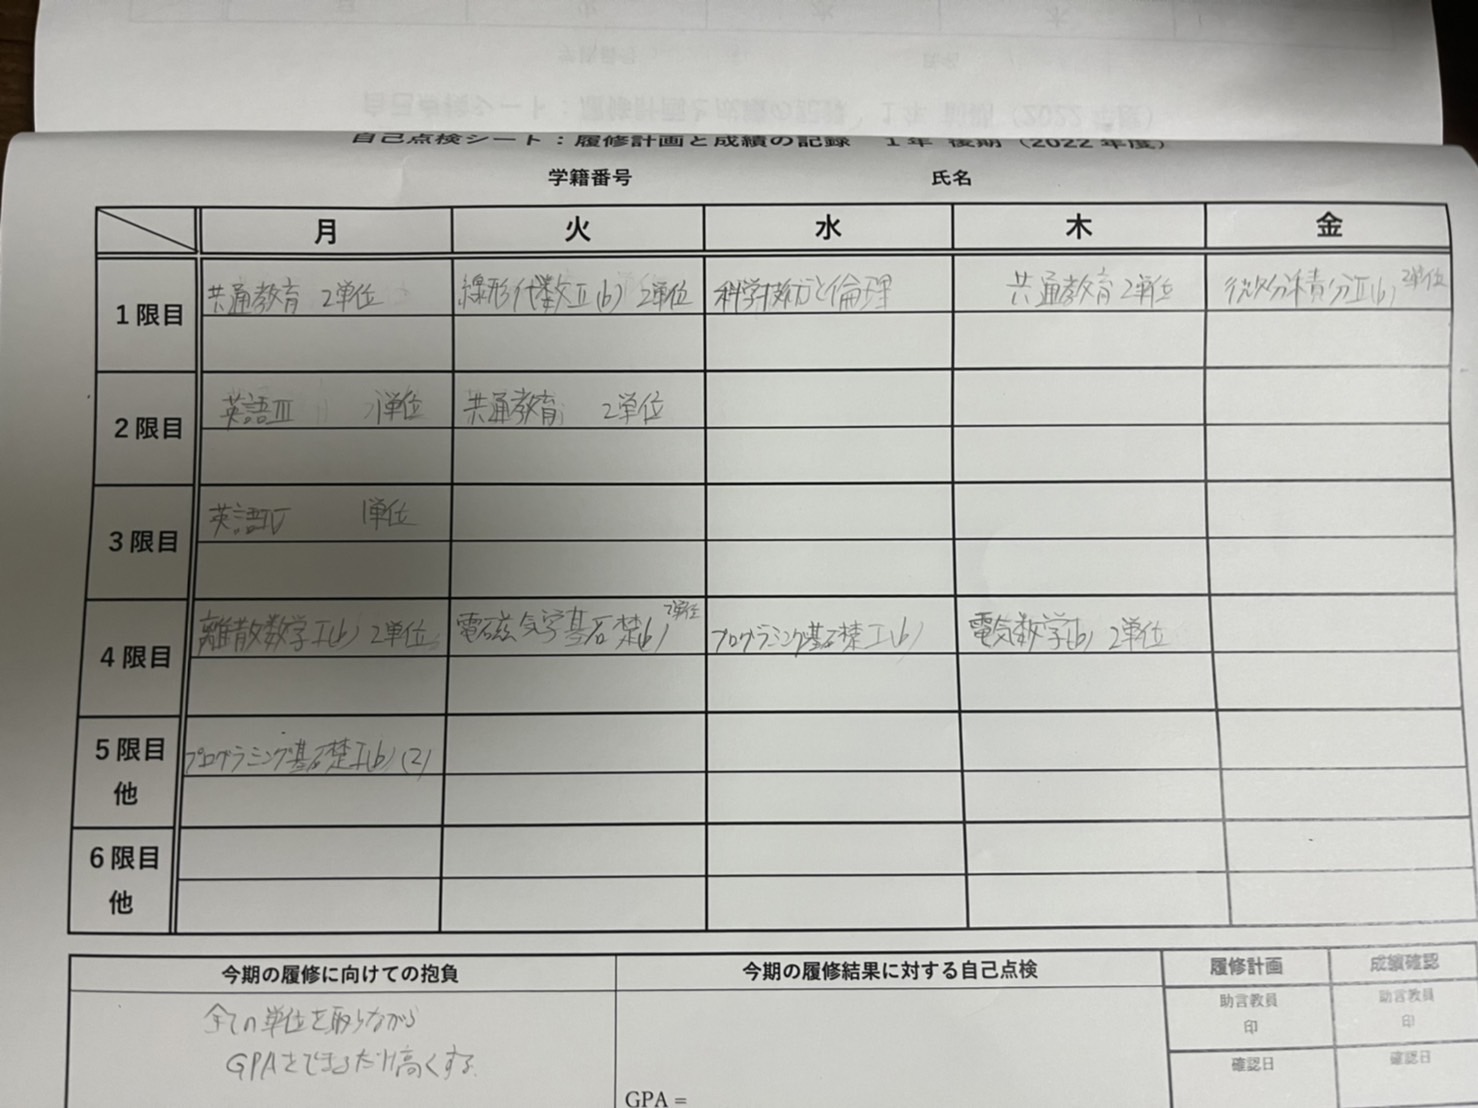 自己点検シート：履修計画と成績の記録　１年 後期（2022 年度）
学籍番号　氏名
月　火　水　木　金
1限目
共通教育 2単位　線形代数Ⅱ(b) 2単位　科学技術と倫理　共通教育 2単位　微分積分Ⅱ(b) 2単位
2限目
英語Ⅲ 1単位　共通教育 2単位
3限目
英語Ⅳ 1単位
4限目
離散数学Ⅰ(b) 2単位　電磁気学基礎(b) 2単位　プログラミング基礎Ⅰ(b)　電気数学(b) 2単位
5限目
他
プログラミング基礎Ⅰ(b) (2)
6限目
他
今期の履修に向けての抱負　今期の履修結果に対する自己点検　履修計画　成績確認
全ての単位を取りながら
GPAをできるだけ高くする。
助言教員　助言教員
印　印
確認日　確認日
GPA =